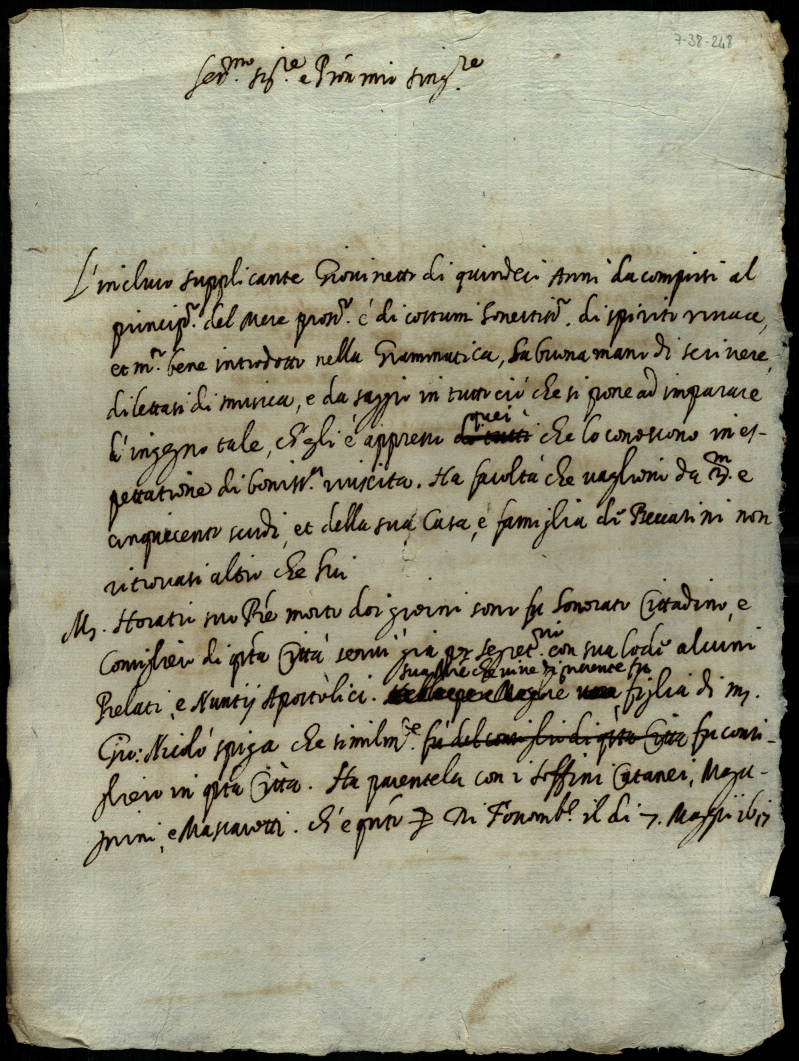 7-38-248
Ser.mo sig.re e Prón mio sing.re
L'incluso supplicante Giovinetto di quindeci Anni da compirsi al
princip.o del Mese pross.o é di costumi honestiss.i di spirito vivace,
et m.o bene introdotto nella Grammatica, ha buona mano di scrivere,
dilettasi di musica, e da saggio in tutto ció che si pone ad imparare
d'ingegno tale, ch'egli é appresso quei che lo conoscono in es-
pettatione di boniss.a riuscita. Ha facoltá che vaglioni da m. e
cinquecento scudi, et della sua Casa, e famiglia de Beccarini non
ritrovasi altro che lui
M. Horatio suo Pre morto doi giorni sono fu honorato Cittadino, e
Consigliero di qsta Cittá servi giá per segret.rio con sua lode alcuni
Prelati, e Nuntij Apostolici. sua Mre che vive fu figlia di m.
Gio: Nicoló spiga che similm.te fú del consiglio di qsta Cittá fu consi-
gliero in qsta Cittá. Ha parentela con i Catanei,
e Mascarotti. ch'é qnto Di Fossomb.e il di 7. Maggio 1617